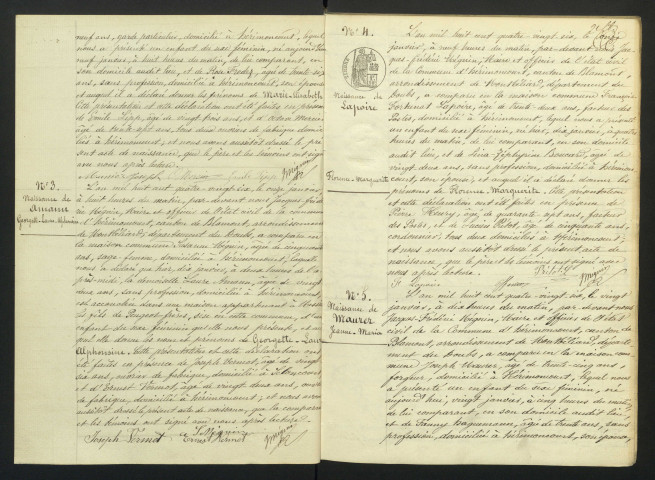 neuf ans, garde particulier, domicilié à Hérimoncourt, lequel
nous a présenté un enfant du sexe féminin, né aujourd'hui
neuf janvier, à huit heures du matin, de lui comparant, en
son domicile audit lieu, et de
sans profession, domiciliée à Hérimoncourt, son épouse
et auquel il a déclaré donner les prénoms de Marie-Elisabeth
Cette présentation et cette déclaration ont été faites en présence
de Emile âgé de vingt trois ans, et d'
âgé de ans, tous deux ouvriers de fabrique domiciliés
à Hérimoncourt; et nous avons aussitôt dressé le présent
acte de naissance, que le père et les témoins ont signé
avec nous après lecture.
N° 3.
Naissance de
Amann
Georgette-Laure-Alphonsine
L'an mil huit cent quatre-vingt-six, le onze janvier
à huit heures du matin, par devant nous Jacques Frédéric
Méquin, Maire et officier de l'état civil de la commune
d'Hérimoncourt, canton de Blamont, arrondissement
de Montbéliard, département du Doubs, a comparu en
la maison commune
ans, sage-femme, domiciliée à Hérimoncourt; laquelle
nous a déclaré que hier, dix janvier, à deux heures de l'a-
près-midi, la demoiselle Laure Amann, âgée de vingt
deux ans, sans profession, domiciliée à Hérimoncourt,
est accouchée dans une maison appartenant à Messieurs
les fils de Peugeot frères, sise en cette commune, d'un
enfant du sexe féminin qu'elle nous présente, et au-
quel elle donne les noms et prénoms de Georgette-Laure
Alphonsine. Cette présentation et cette déclaration ont
été faites en présence de Joseph Pernot, âgé de vingt
six ans, ouvrier de fabrique, domicilié à
et d'Ernest Pernot, âgé de vingt deux ans, ouvrier
de fabrique, domicilié à Hérimoncourt; et nous avons
aussitôt dressé le présent acte de naissance, que la comparante
et les témoins ont signé avec nous après lecture.
Joseph Pernot Ernest Pernot
N° 4.
Naissance de
Lapoire
Florine-Marguerite
L'an mil huit cent quatre-vingt-six, le onze
janvier, à neuf heures du matin, par devant nous Jac-
ques-Frédéric Méquin, Maire et officier de l'état civil
de la commune d'Hérimoncourt, canton de Blamont,
arrondissement de Montbéliard, département du
Doubs, a comparu en la maison commune François
Fortunat Lapoire, âgé de trente-deux ans, facteur des
Postes, domicilié à Hérimoncourt, lequel nous a présenté
un enfant du sexe féminin, né hier, dix janvier, à quatre
heures du matin, de lui comparant, en son domicile
audit lieu, et de
vingt deux ans, sans profession, domiciliée à Hérimon-
court, son épouse; et auquel il a déclaré donner les
prénoms de Florine, Marguerite. Cette présentation
et cette déclaration ont été faites en présence de
Pierre Henry, âgé de quarante-sept ans, facteur
des Postes, et de Pilot, âgé de cinquante ans,
cordonnier, tous deux domiciliés à Hérimoncourt;
et nous avons aussitôt dressé le présent acte de
naissance, que le père et les témoins ont signé avec
nous après lecture. Pilot
F. Lapoire Henry
N° 5.
Naissance de
Maurer
Jeanne-Marie
L'an mil huit cent quatre-vingt-six, le vingt
janvier, à dix heures du matin, par devant nous
Jacques Frédéric Méquin, Maire et officier de l'état
civil de la Commune d'Hérimoncourt, canton de
Blamont, arrondissement de Montbéliard, départe-
ment du Doubs, a comparu en la maison com-
mune Joseph Maurer, âgé de trente-cinq ans,
forgeur, domicilié à Hérimoncourt, lequel nous
a présenté un enfant du sexe féminin, né
aujourd'hui, vingt janvier, à cinq heures du matin,
de lui comparant, en son domicile audit lieu,
et de Fanny âgée de trente ans, sans
profession, domiciliée à Hérimoncourt, son épouse,